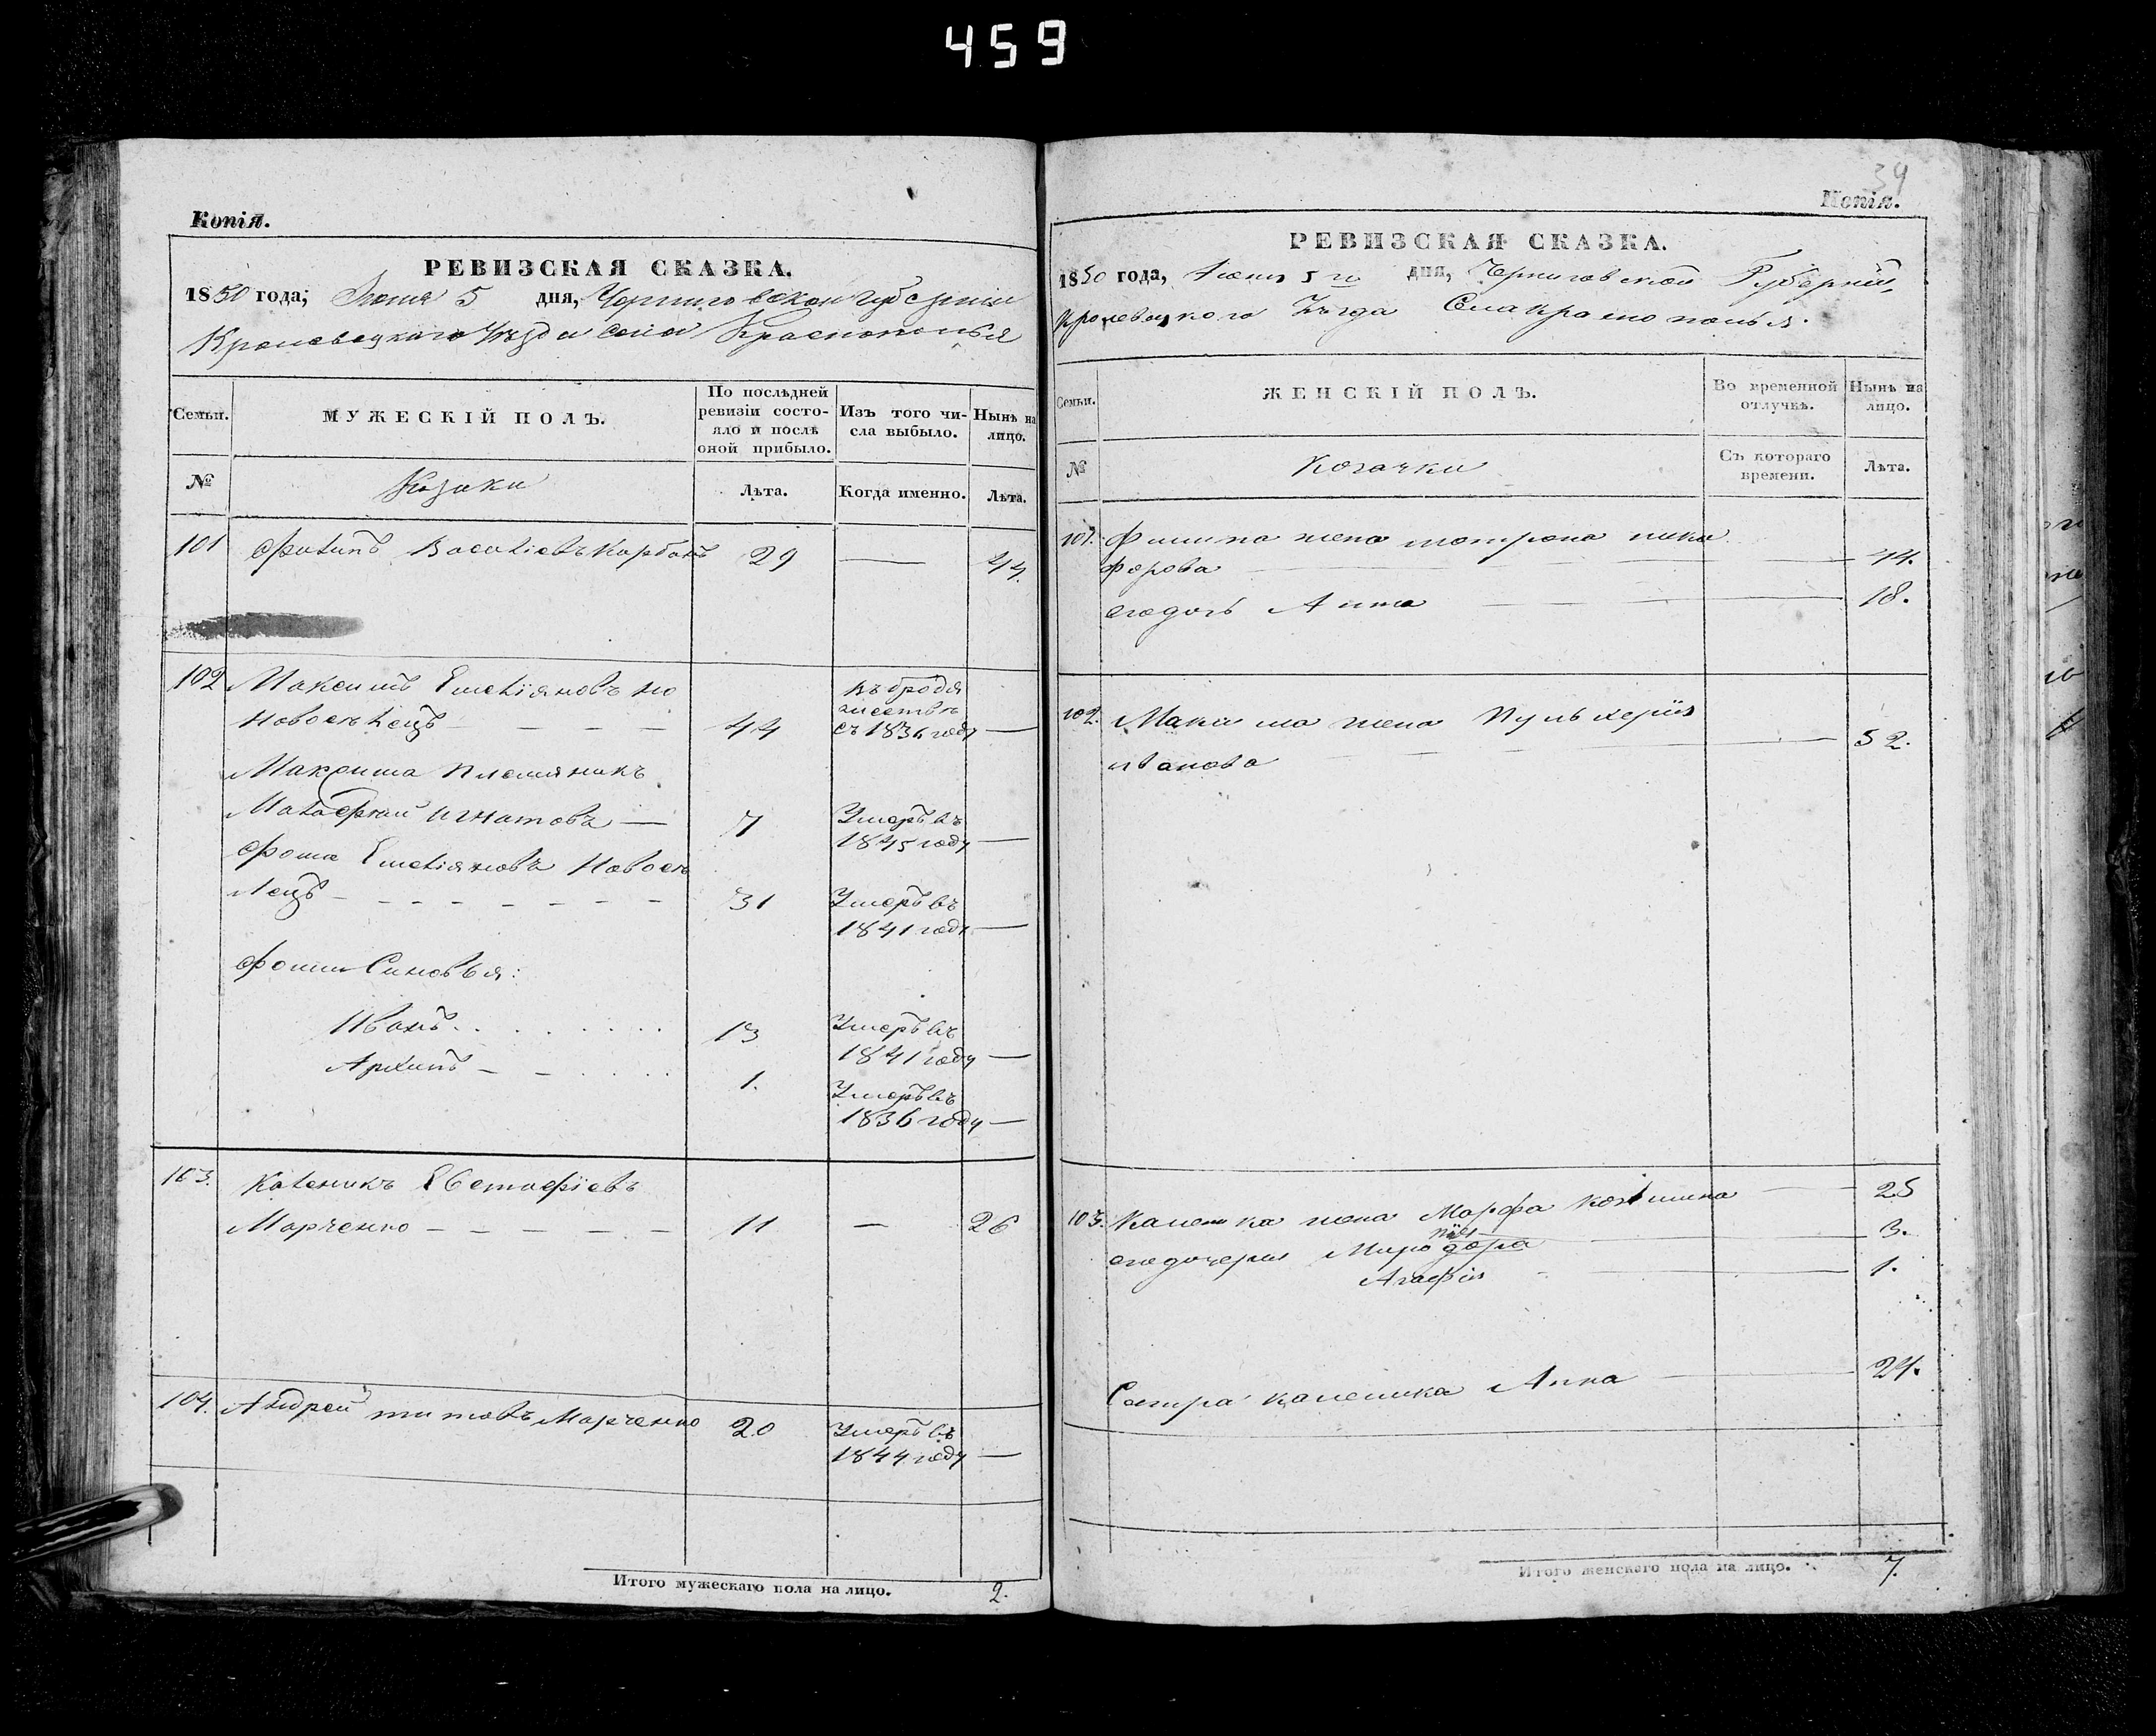 459
Копія.
РЕВИЗСКАЯ СКАЗКА.
1850 года, Июня 5 дня, Черниговской губерніи
Кролевецкаго Уѣзда села Краснополья
Семьи.
МУЖЕСКІЙ ПОЛЪ.
По послѣдней ревизіи состо-
яло и послѣ оной прибыло.
Изъ того чи-
сла выбыло.
Нынѣ на
лицо.
№
Козаки
Лѣта.
Когда именно.
Лѣта.
101 Филипъ Василіевъ Карбанъ 29 — 44.
102 Максимъ Емеліяновъ но
новоселецъ 44
въ бродя
жествѣ
съ 1836 года —
Максима племяникъ
Малафтей Игнатовъ — 7
Умеръ въ
1845 году —
Фома Емеліяновъ Новосе
лецъ 31
Умеръ въ
1841 году —
Фомы Синовья:
Иванъ 13
Умеръ въ
1841 году —
Архипъ 1.
Умеръ въ
1836 году —
103. Каленикъ Евстафіевъ
Марченко 11 — 26
104. Андрей титовъ Марченко 20
Умеръ въ
1844 году —
Итого мужескаго пола на лицо. 2.
39
Копія.
РЕВИЗСКАЯ СКАЗКА.
1850 года, Июня 5 го дня, Черниговской Губерній,
кролевецкого Уѣзда Села краснополья.
Семьи.
ЖЕНСКІЙ ПОЛЪ.
Во временной
отлучкѣ.
Нынѣ на
лицо.
№
Козачки
Съ котораго
времени.
Лѣта.
101. Филипа жена матрона ники
форова 44.
егодочь Анна 18.
102. Максима жена Пульхерія
иванова 52.
103. Каленика жена Марфа 25
егодочерия 3.
Агафія 1.
Сестра каленика Анна 24.
Итого женскаго пола на лицо. 7.